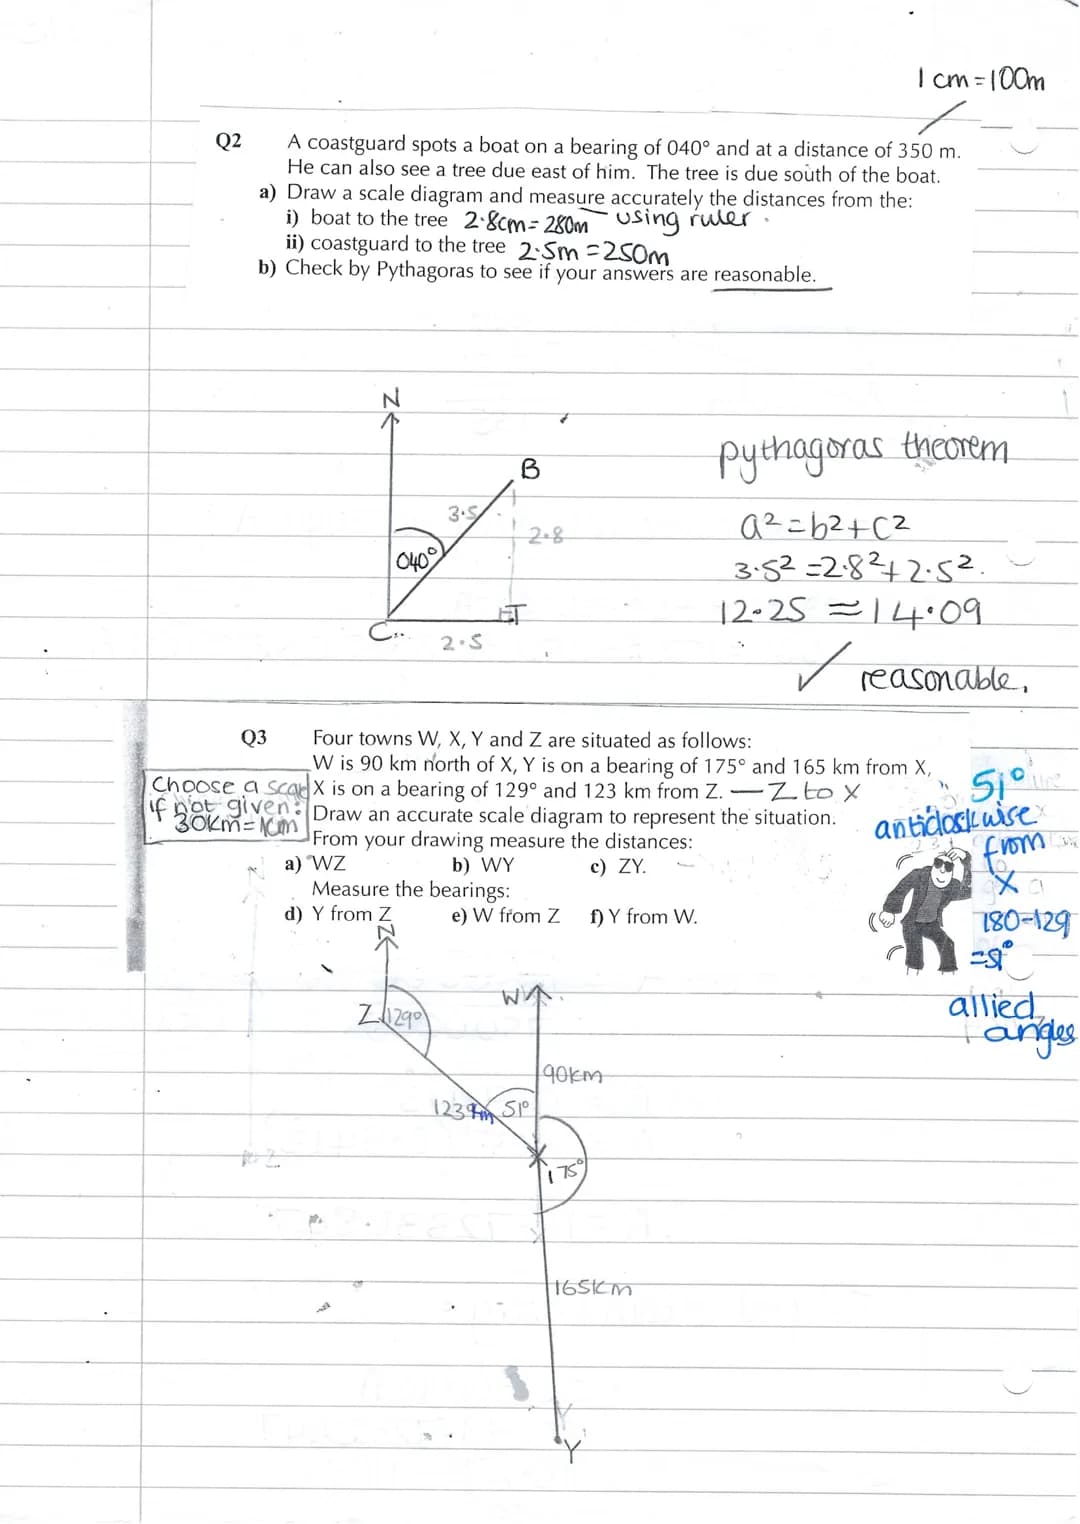 1 cm = 100m
Q2 A coastguard spots a boat on a bearing of 040° and at a distance of 350 m.
He can also see a tree due east of him. The tree is due south of the boat.
a) Draw a scale diagram and measure accurately the distances from the:
i) boat to the tree 2.8cm = 280m using ruler.
ii) coastguard to the tree 2.5m = 250m
b) Check by Pythagoras to see if your answers are reasonable.
N
B
3.5
2.8
040°
C
T
2.5
pythagoras theorem
a² = b² + c²
3.5² = 2.8² + 2.5².
12.25 = 14.09
✓ reasonable.
Q3 Four towns W, X, Y and Z are situated as follows:
W is 90 km north of X, Y is on a bearing of 175° and 165 km from X,
X is on a bearing of 129° and 123 km from Z. — Z to X
Draw an accurate scale diagram to represent the situation.
From your drawing measure the distances:
a) WZ b) WY c) ZY.
Measure the bearings:
d) Y from Z e) W from Z f) Y from W.
Choose a scale
if not given:
30km = 1cm
51°
anticlockwise
from
X
180-129
=51°
allied
angles
N
Z
129°
W
90km
123km
51°
X
175°
165km
Y